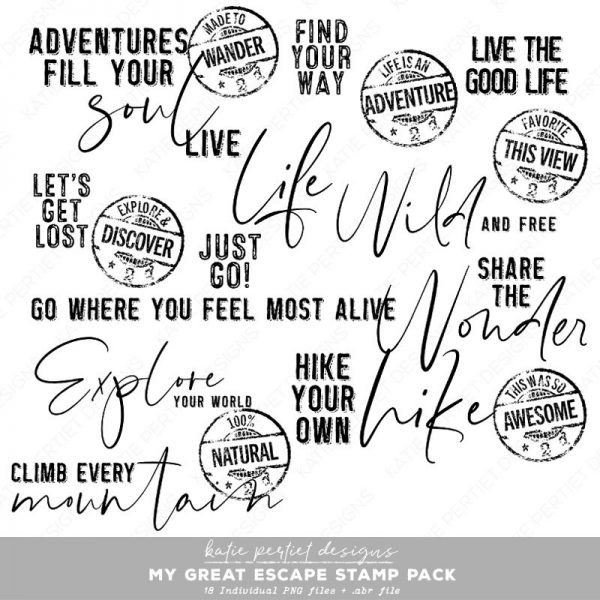 ADVENTURES
FILL YOUR
soul
MADE TO
WANDER
* 23
FIND
YOUR
WAY
LIFE IS AN
ADVENTURE
* 23
LIVE THE
GOOD LIFE
LIVE
Life
FAVORITE
THIS VIEW
* 23
LET'S
GET
LOST
EXPLORE &
DISCOVER
* 23
JUST
GO!
Wild AND FREE
GO WHERE YOU FEEL MOST ALIVE
SHARE
THE
Wonder
Explore
YOUR WORLD
HIKE
YOUR
OWN
hike
THIS WAS SO
AWESOME
* 23
100%
NATURAL
* 23
CLIMB EVERY
mountain
katie pertiet designs
MY GREAT ESCAPE STAMP PACK
18 Individual PNG files + .abr file